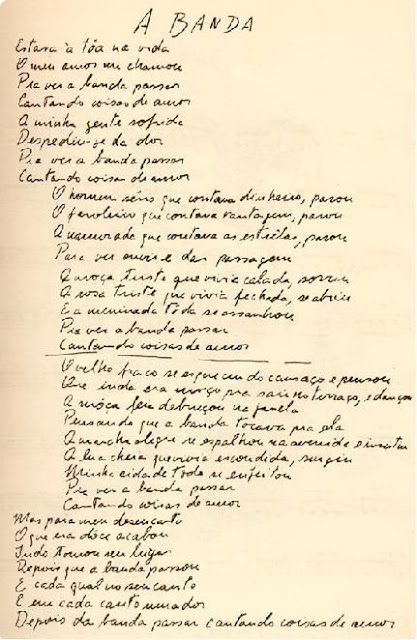 A BANDA
Estava à tôa na vida
O meu amor me chamou
Pra ver a banda passar
Cantando coisas de amor
A minha gente sofrida
Despediu-se da dor
Pra ver a banda passar
Cantando coisas de amor
O homem sério que contava dinheiro, parou
O faroleiro que contava vantagem, parou
A namorada que contava as estrelas, parou
Para ver ouvir e dar passagem
A moça triste que vivia calada, sorriu
A rosa triste que vivia fechada, se abriu
E a meninada toda se assanhou
Pra ver a banda passar
Cantando coisas de amor
O velho fraco se esqueceu do cansaço e pensou
Que inda era môço pra sair no terraço, e dançou
A môça feia debruçou na janela
Pensando que a banda tocava pra ela
A marcha alegre se espalhou na avenida e insistiu
A lua cheia que vivia escondida, surgiu
Minha cidade toda se enfeitou
Pra ver a banda passar
Cantando coisas de amor
Mas para meu desencanto
O que era dôce acabou
Tudo tomou seu lugar
Depois que a banda passou
E cada qual no seu canto
E em cada canto uma dor
Depois da banda passar cantando coisas de amor